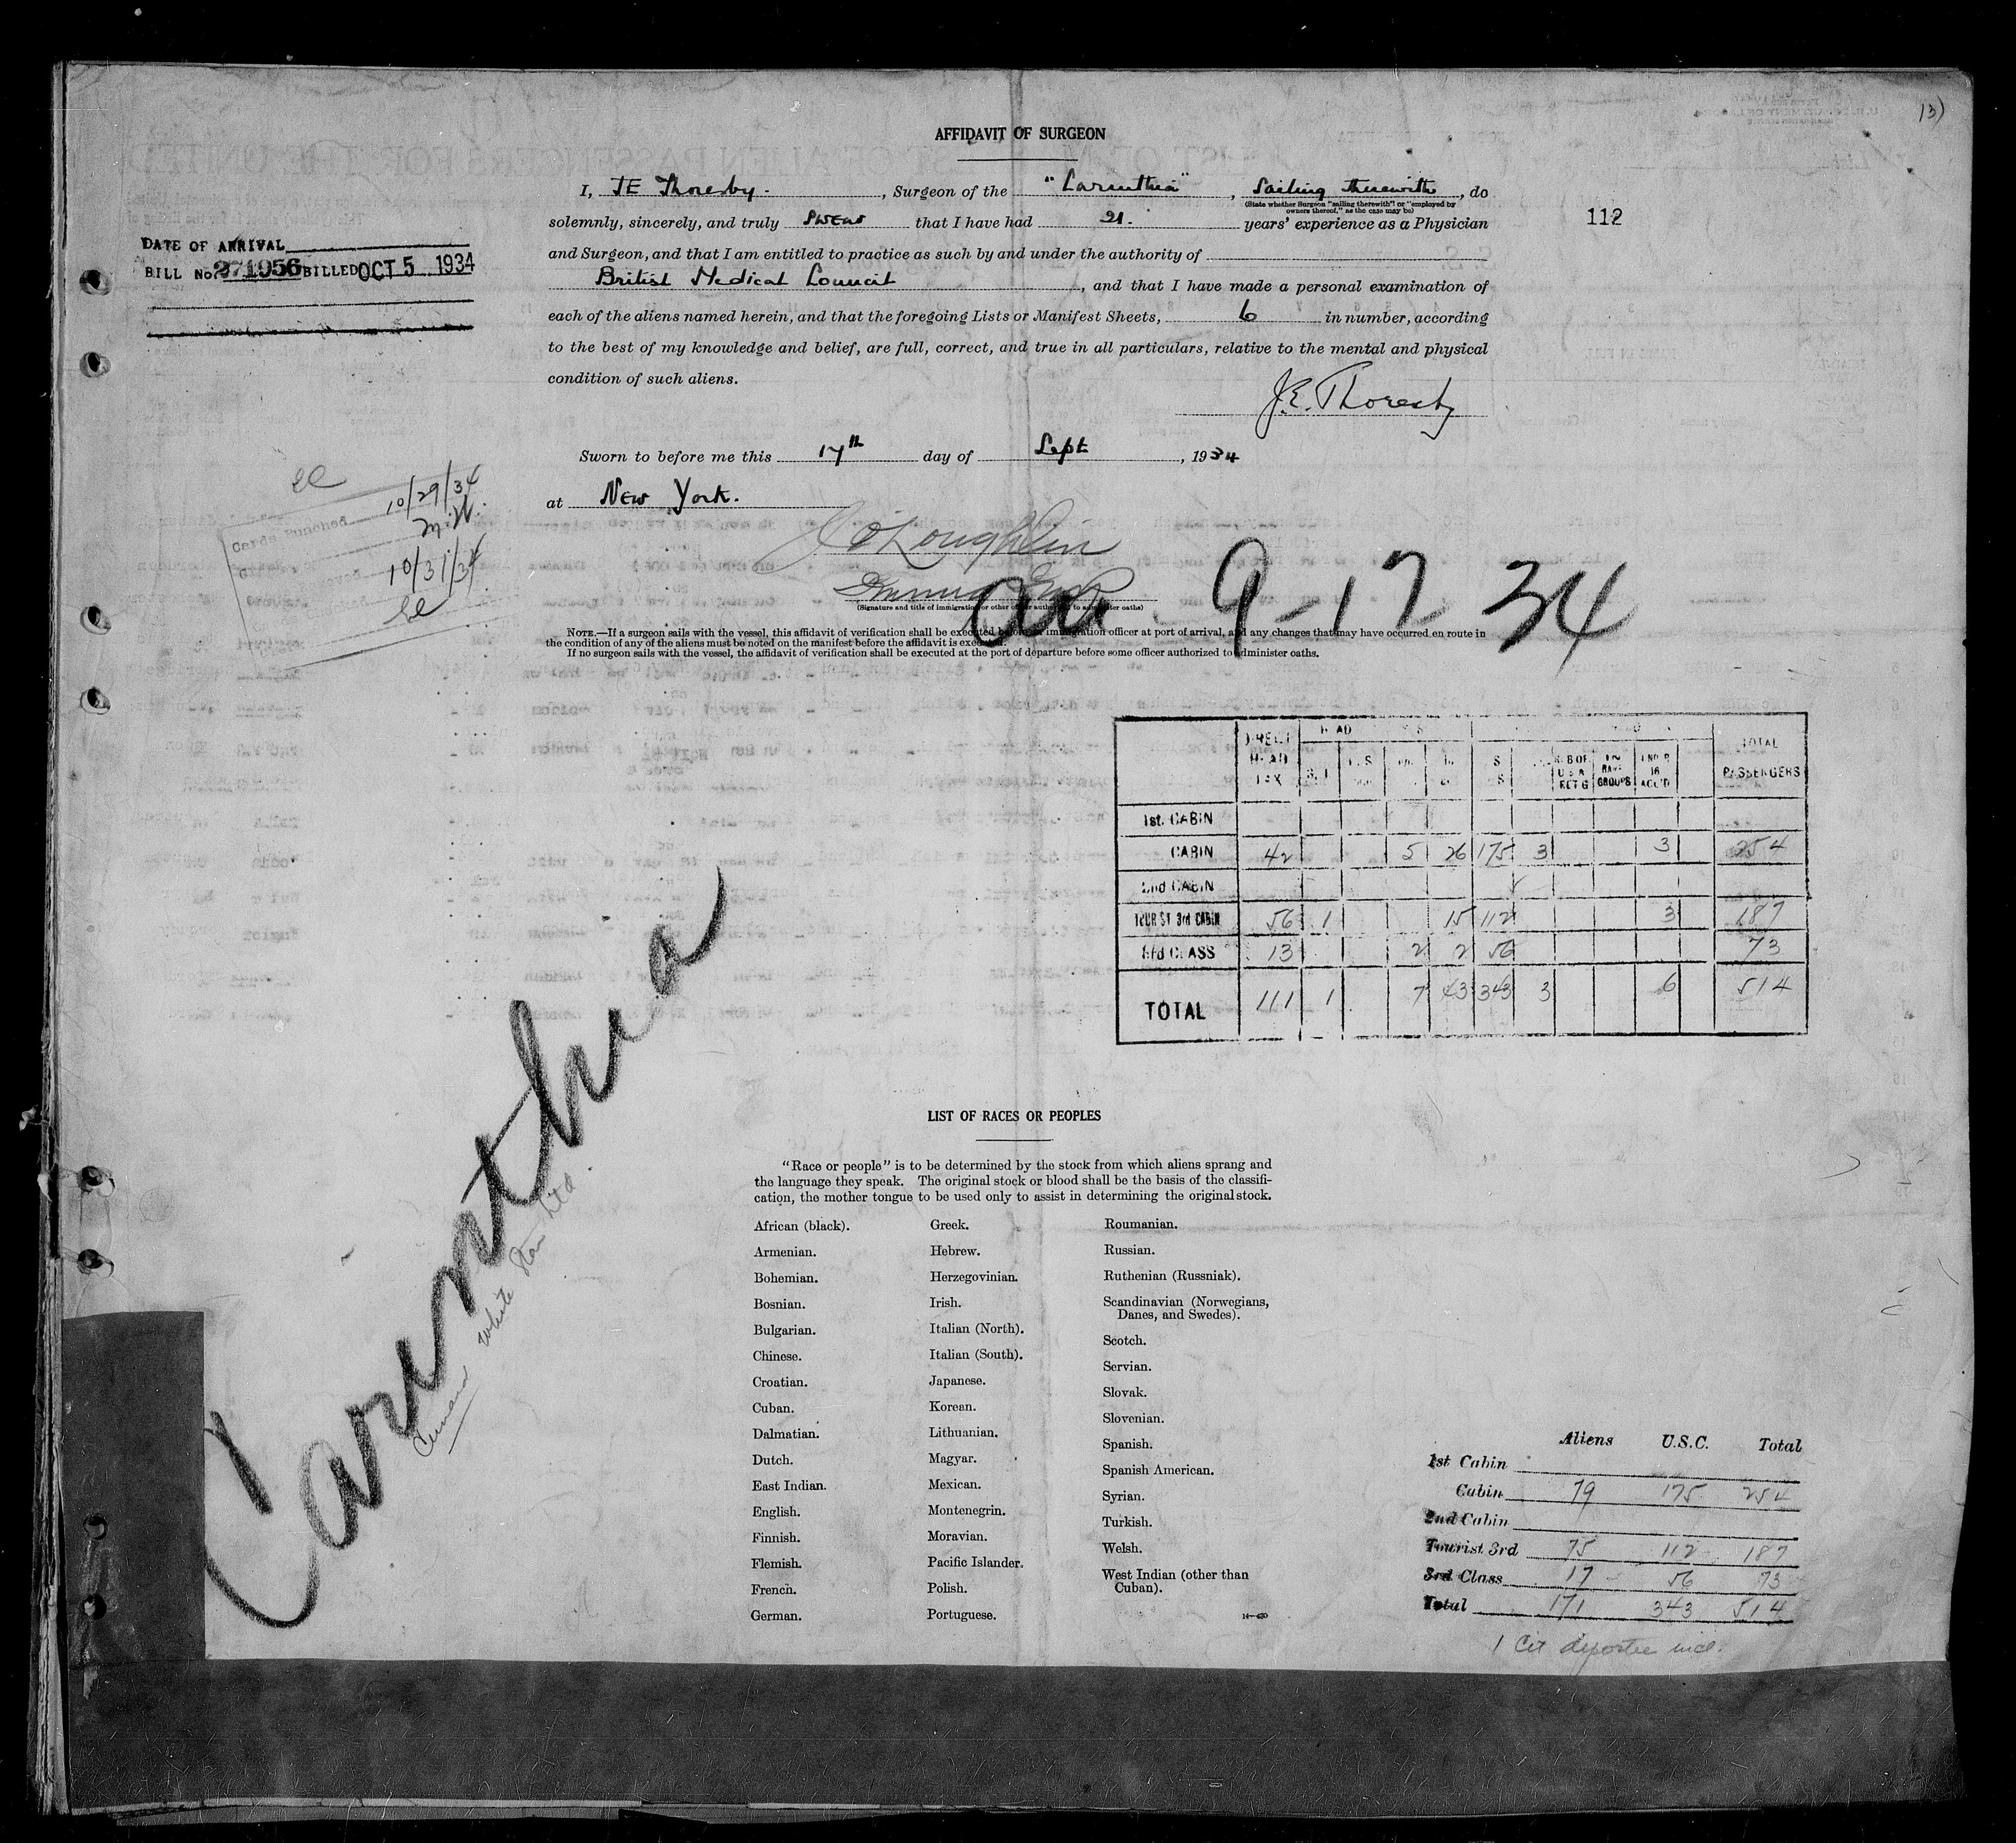 13)
AFFIDAVIT OF SURGEON
I, JE Thoresby., Surgeon of the "Carinthia", Sailing therewith, do
(State whether Surgeon "sailing therewith" or "employed by
owners thereof," as the case may be)
solemnly, sincerely, and truly swear that I have had 21. years' experience as a Physician
112
and Surgeon, and that I am entitled to practice as such by and under the authority of
British Medical Council, and that I have made a personal examination of
each of the aliens named herein, and that the foregoing Lists or Manifest Sheets, 6 in number, according
to the best of my knowledge and belief, are full, correct, and true in all particulars, relative to the mental and physical
condition of such aliens.
J.E. Thoresby
DATE OF ARRIVAL
BILL No. 271056 BILLED OCT 5 1934
Sworn to before me this 17th day of Sept, 1934
at New York.
Cards Punched 10/29/34
10/31/34
J O'Loughlin
(Signature and title of immigration or other officer authorized to administer oaths)
9-17 34
NOTE.—If a surgeon sails with the vessel, this affidavit of verification shall be executed before an immigration officer at port of arrival, and any changes that may have occurred en route in
the condition of any of the aliens must be noted on the manifest before the affidavit is executed.
If no surgeon sails with the vessel, the affidavit of verification shall be executed at the port of departure before some officer authorized to administer oaths.
HEAD TAX
TOTAL PASSENGERS
GROUPS
1st. CABIN
CABIN 42 5 26 175 3 3 254
2nd CABIN
TOURIST 3rd CABIN 56 1 15 112 3 187
3rd CLASS 13 2 2 56 73
TOTAL 111 1 7 43 343 3 6 514
Carinthia
Cunard White Star Ltd.
LIST OF RACES OR PEOPLES
"Race or people" is to be determined by the stock from which aliens sprang and
the language they speak. The original stock or blood shall be the basis of the classifi-
cation, the mother tongue to be used only to assist in determining the original stock.
African (black).
Armenian.
Bohemian.
Bosnian.
Bulgarian.
Chinese.
Croatian.
Cuban.
Dalmatian.
Dutch.
East Indian.
English.
Finnish.
Flemish.
French.
German.
Greek.
Hebrew.
Herzegovinian.
Irish.
Italian (North).
Italian (South).
Japanese.
Korean.
Lithuanian.
Magyar.
Mexican.
Montenegrin.
Moravian.
Pacific Islander.
Polish.
Portuguese.
Roumanian.
Russian.
Ruthenian (Russniak).
Scandinavian (Norwegians,
Danes, and Swedes).
Scotch.
Servian.
Slovak.
Slovenian.
Spanish.
Spanish American.
Syrian.
Turkish.
Welsh.
West Indian (other than
Cuban).
Aliens U.S.C. Total
1st Cabin
Cabin 79 175 254
2nd Cabin
Tourist 3rd 75 112 187
3rd Class 17 56 73
Total 171 343 514
1 Cit deportee incl.